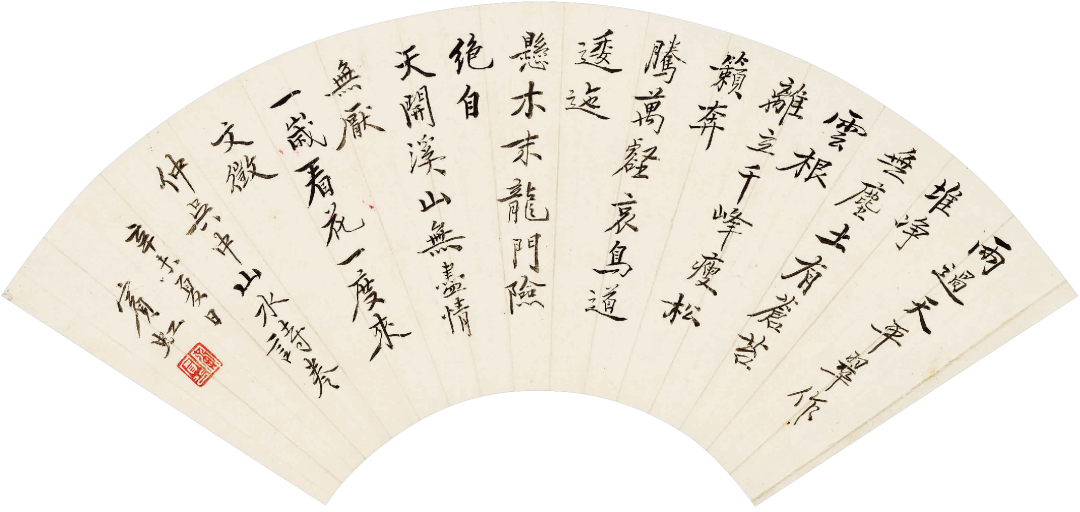 雨過天平翠作
堆净
無塵土有蒼苔
雲根
離立千峰瘦松
籟奔
騰萬壑哀鳥道
逶迤
懸木末龍門險
絕自
天開溪山無盡情
無厭
一歲看花一度來
文徵
仲吳中山水詩卷
辛未夏日
賓虹